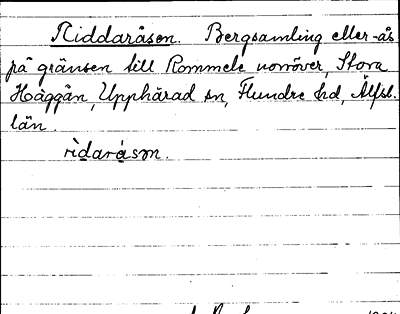 Riddaråsen. Bergsamling eller -ås
på gränsen till Rommele norröver, Stora
Häggån, Upphärad sn, Flundre hd, Älfsb.
län.